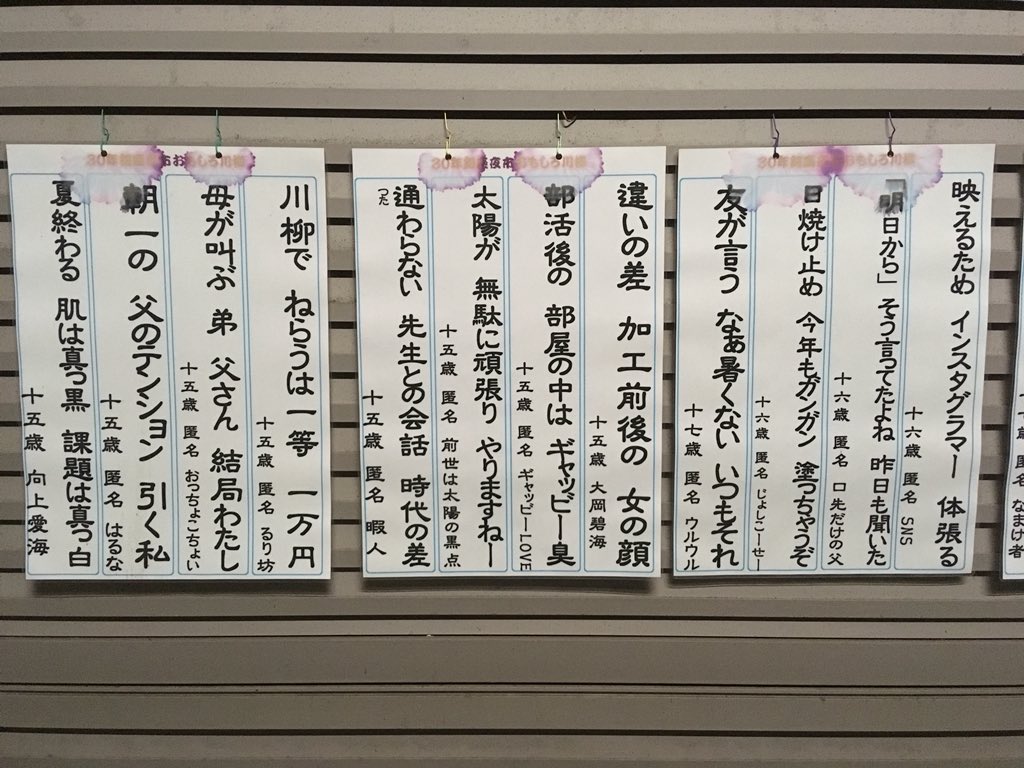 映えるため インスタグラマー 体張る
十六歳 匿名 SNS
「明日から」そう言ってたよね 昨日も聞いた
十六歳 匿名 口先だけの父
日焼け止め 今年もガンガン 塗っちゃうぞ
十六歳 匿名 じょしこーせー
友が言う なぁ暑くない いつもそれ
十七歳 匿名 ウルウル
違いの差 加工前後の 女の顔
十五歳 大岡碧海
部活後の 部屋の中は ギャッビー臭
十五歳 匿名 ギャッビーLOVE
太陽が 無駄に頑張り やりますねー
十五歳 匿名 前世は太陽の黒点
通わらない 先生との会話 時代の差
つた
十五歳 匿名 暇人
川柳で ねらうは一等 一万円
十五歳 匿名 るり坊
母が叫ぶ 弟 父さん 結局わたし
十五歳 匿名 おっちょこちょい
朝一の 父のテンション 引く私
十五歳 匿名 はるな
夏終わる 肌は真っ黒 課題は真っ白
十五歳 向上愛海
匿名 なまけ者